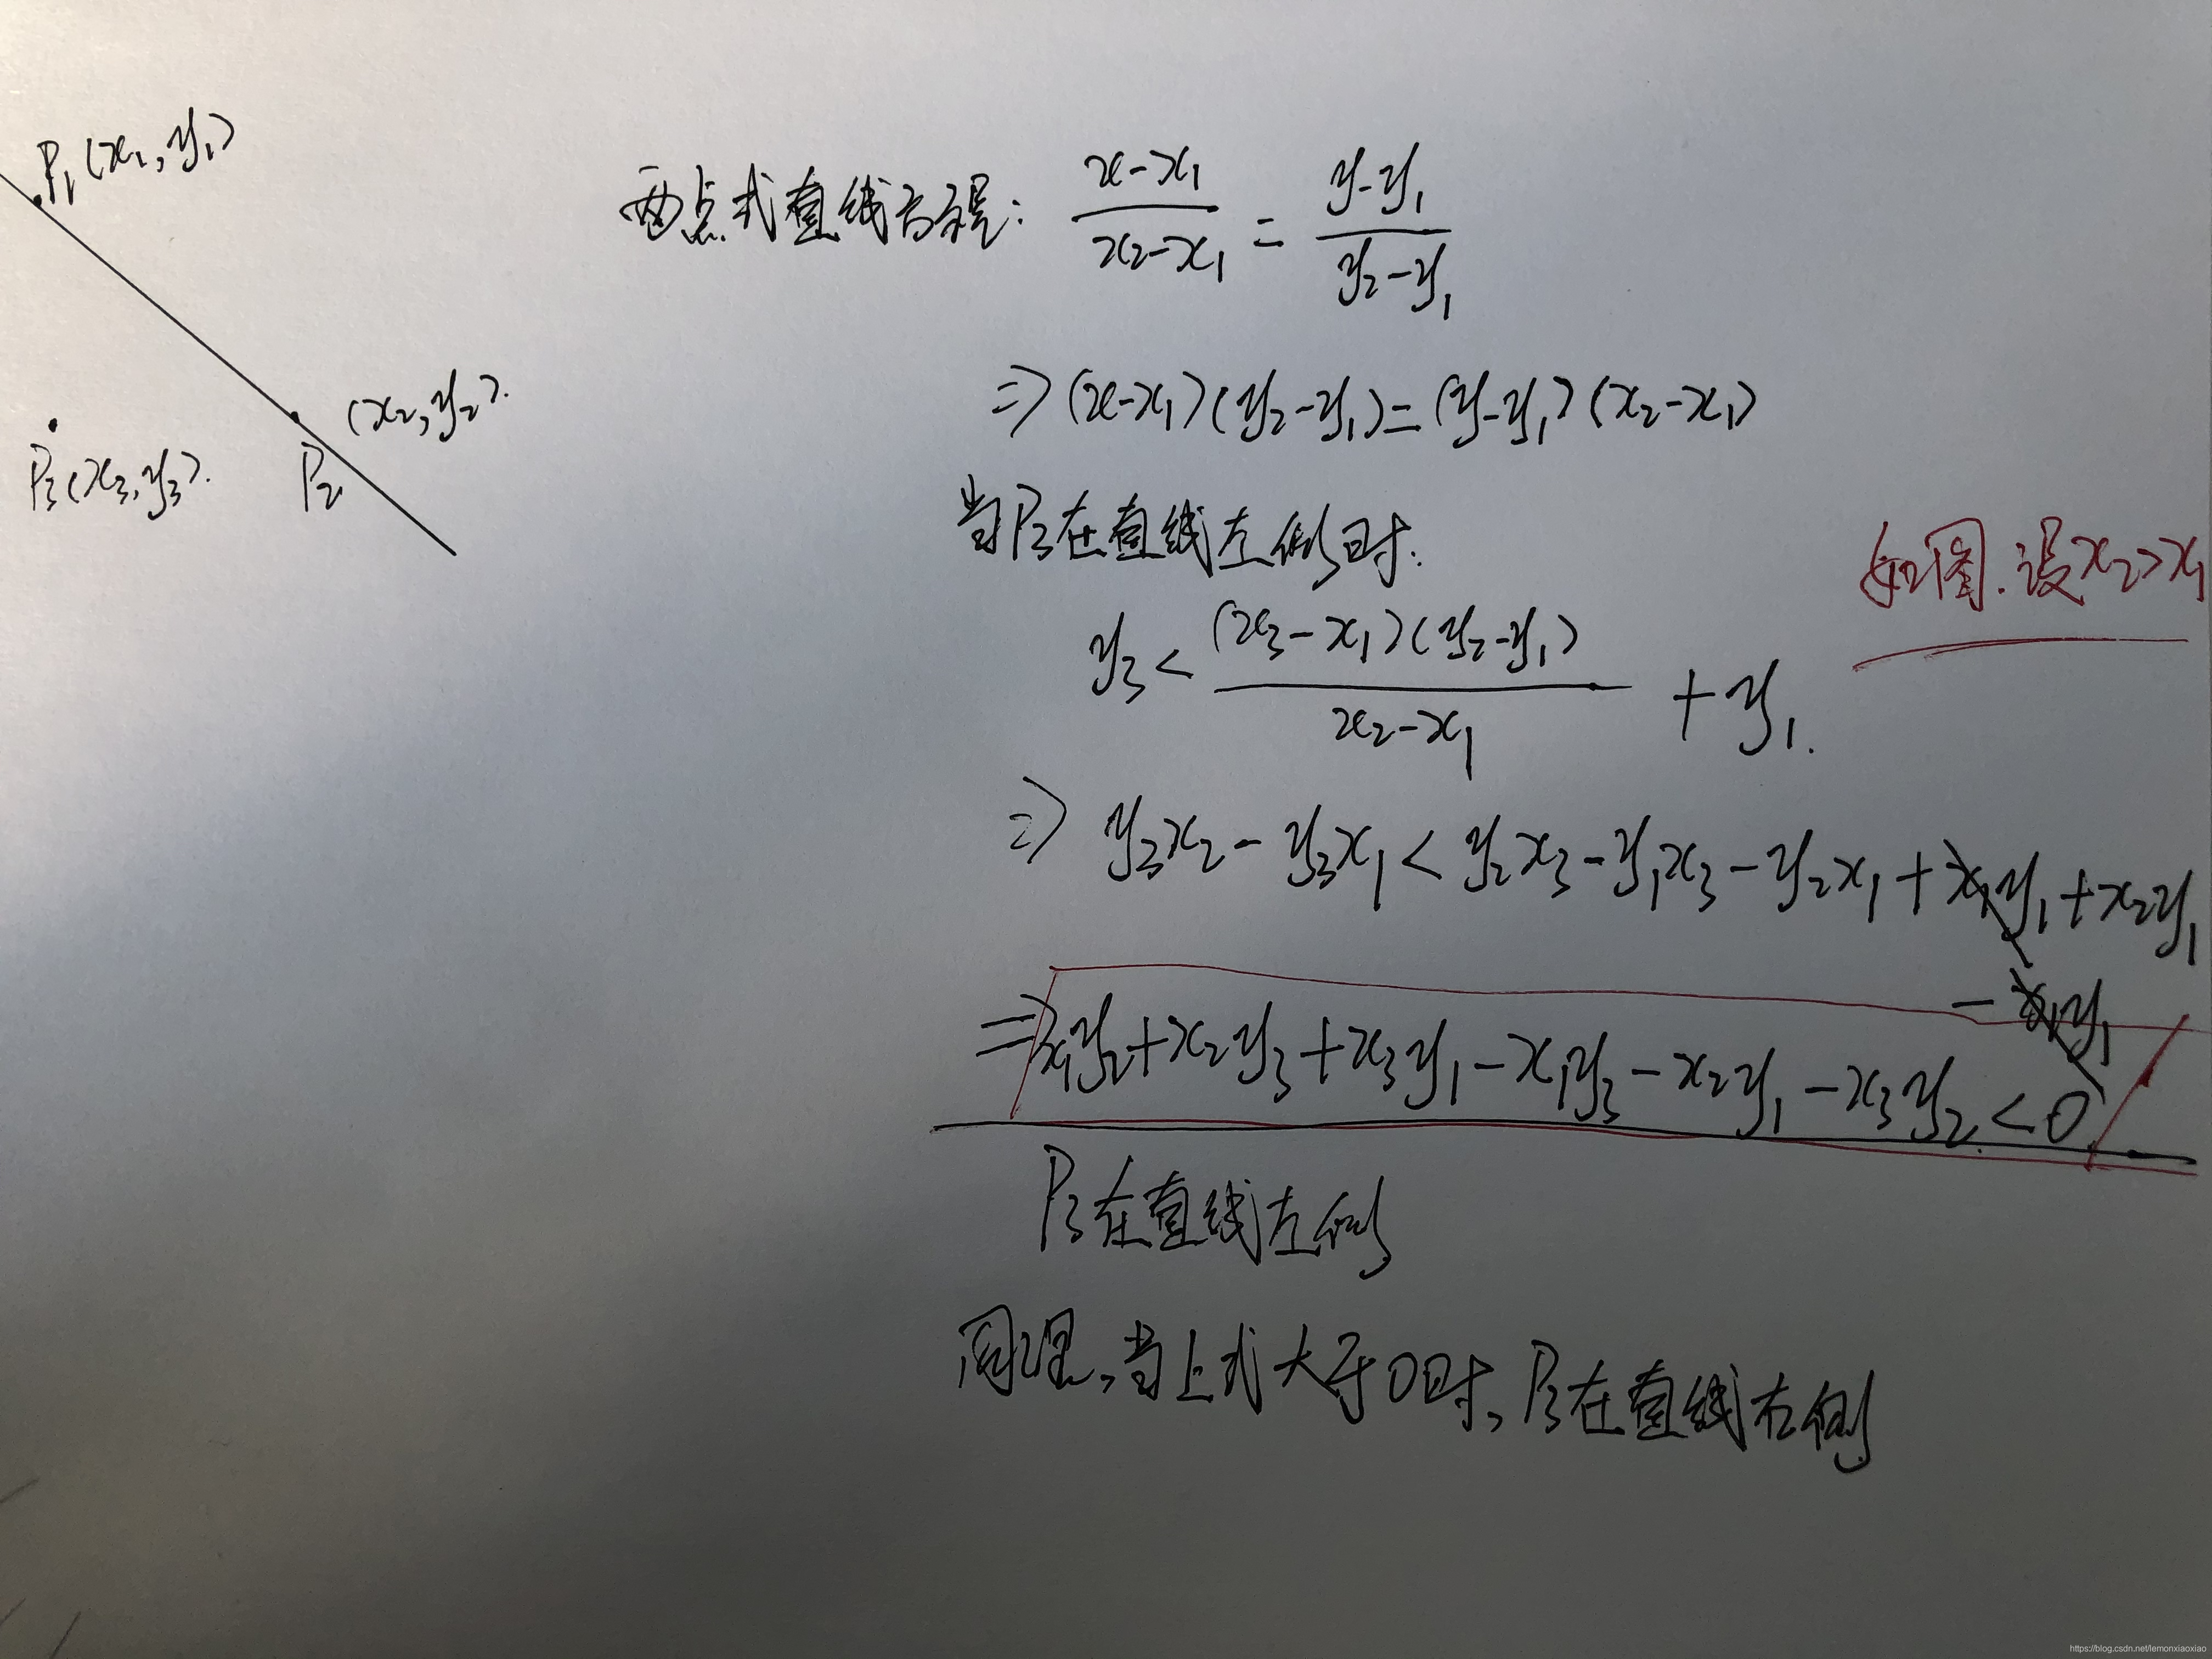 P₁(x₁,y₁)
(x₂,y₂).
P₂
P₃(x₃,y₃).
两点式直线方程: (x-x₁)/(x₂-x₁) = (y-y₁)/(y₂-y₁)
⇒(x-x₁)(y₂-y₁)=(y-y₁)(x₂-x₁)
当P₃在直线左侧时:
如图.设x₂>x₁
y₃< (x₃-x₁)(y₂-y₁)/(x₂-x₁) + y₁.
⇒ y₃x₂-y₃x₁<y₂x₃-y₁x₃-y₂x₁+x₁y₁+x₂y₁
-x₁y₁
⇒x₁y₂+x₂y₃+x₃y₁-x₁y₃-x₂y₁-x₃y₂<0
P₃在直线左侧
同理,当上式大于0时,P₃在直线右侧
https://blog.csdn.net/lemonxiaoxiao